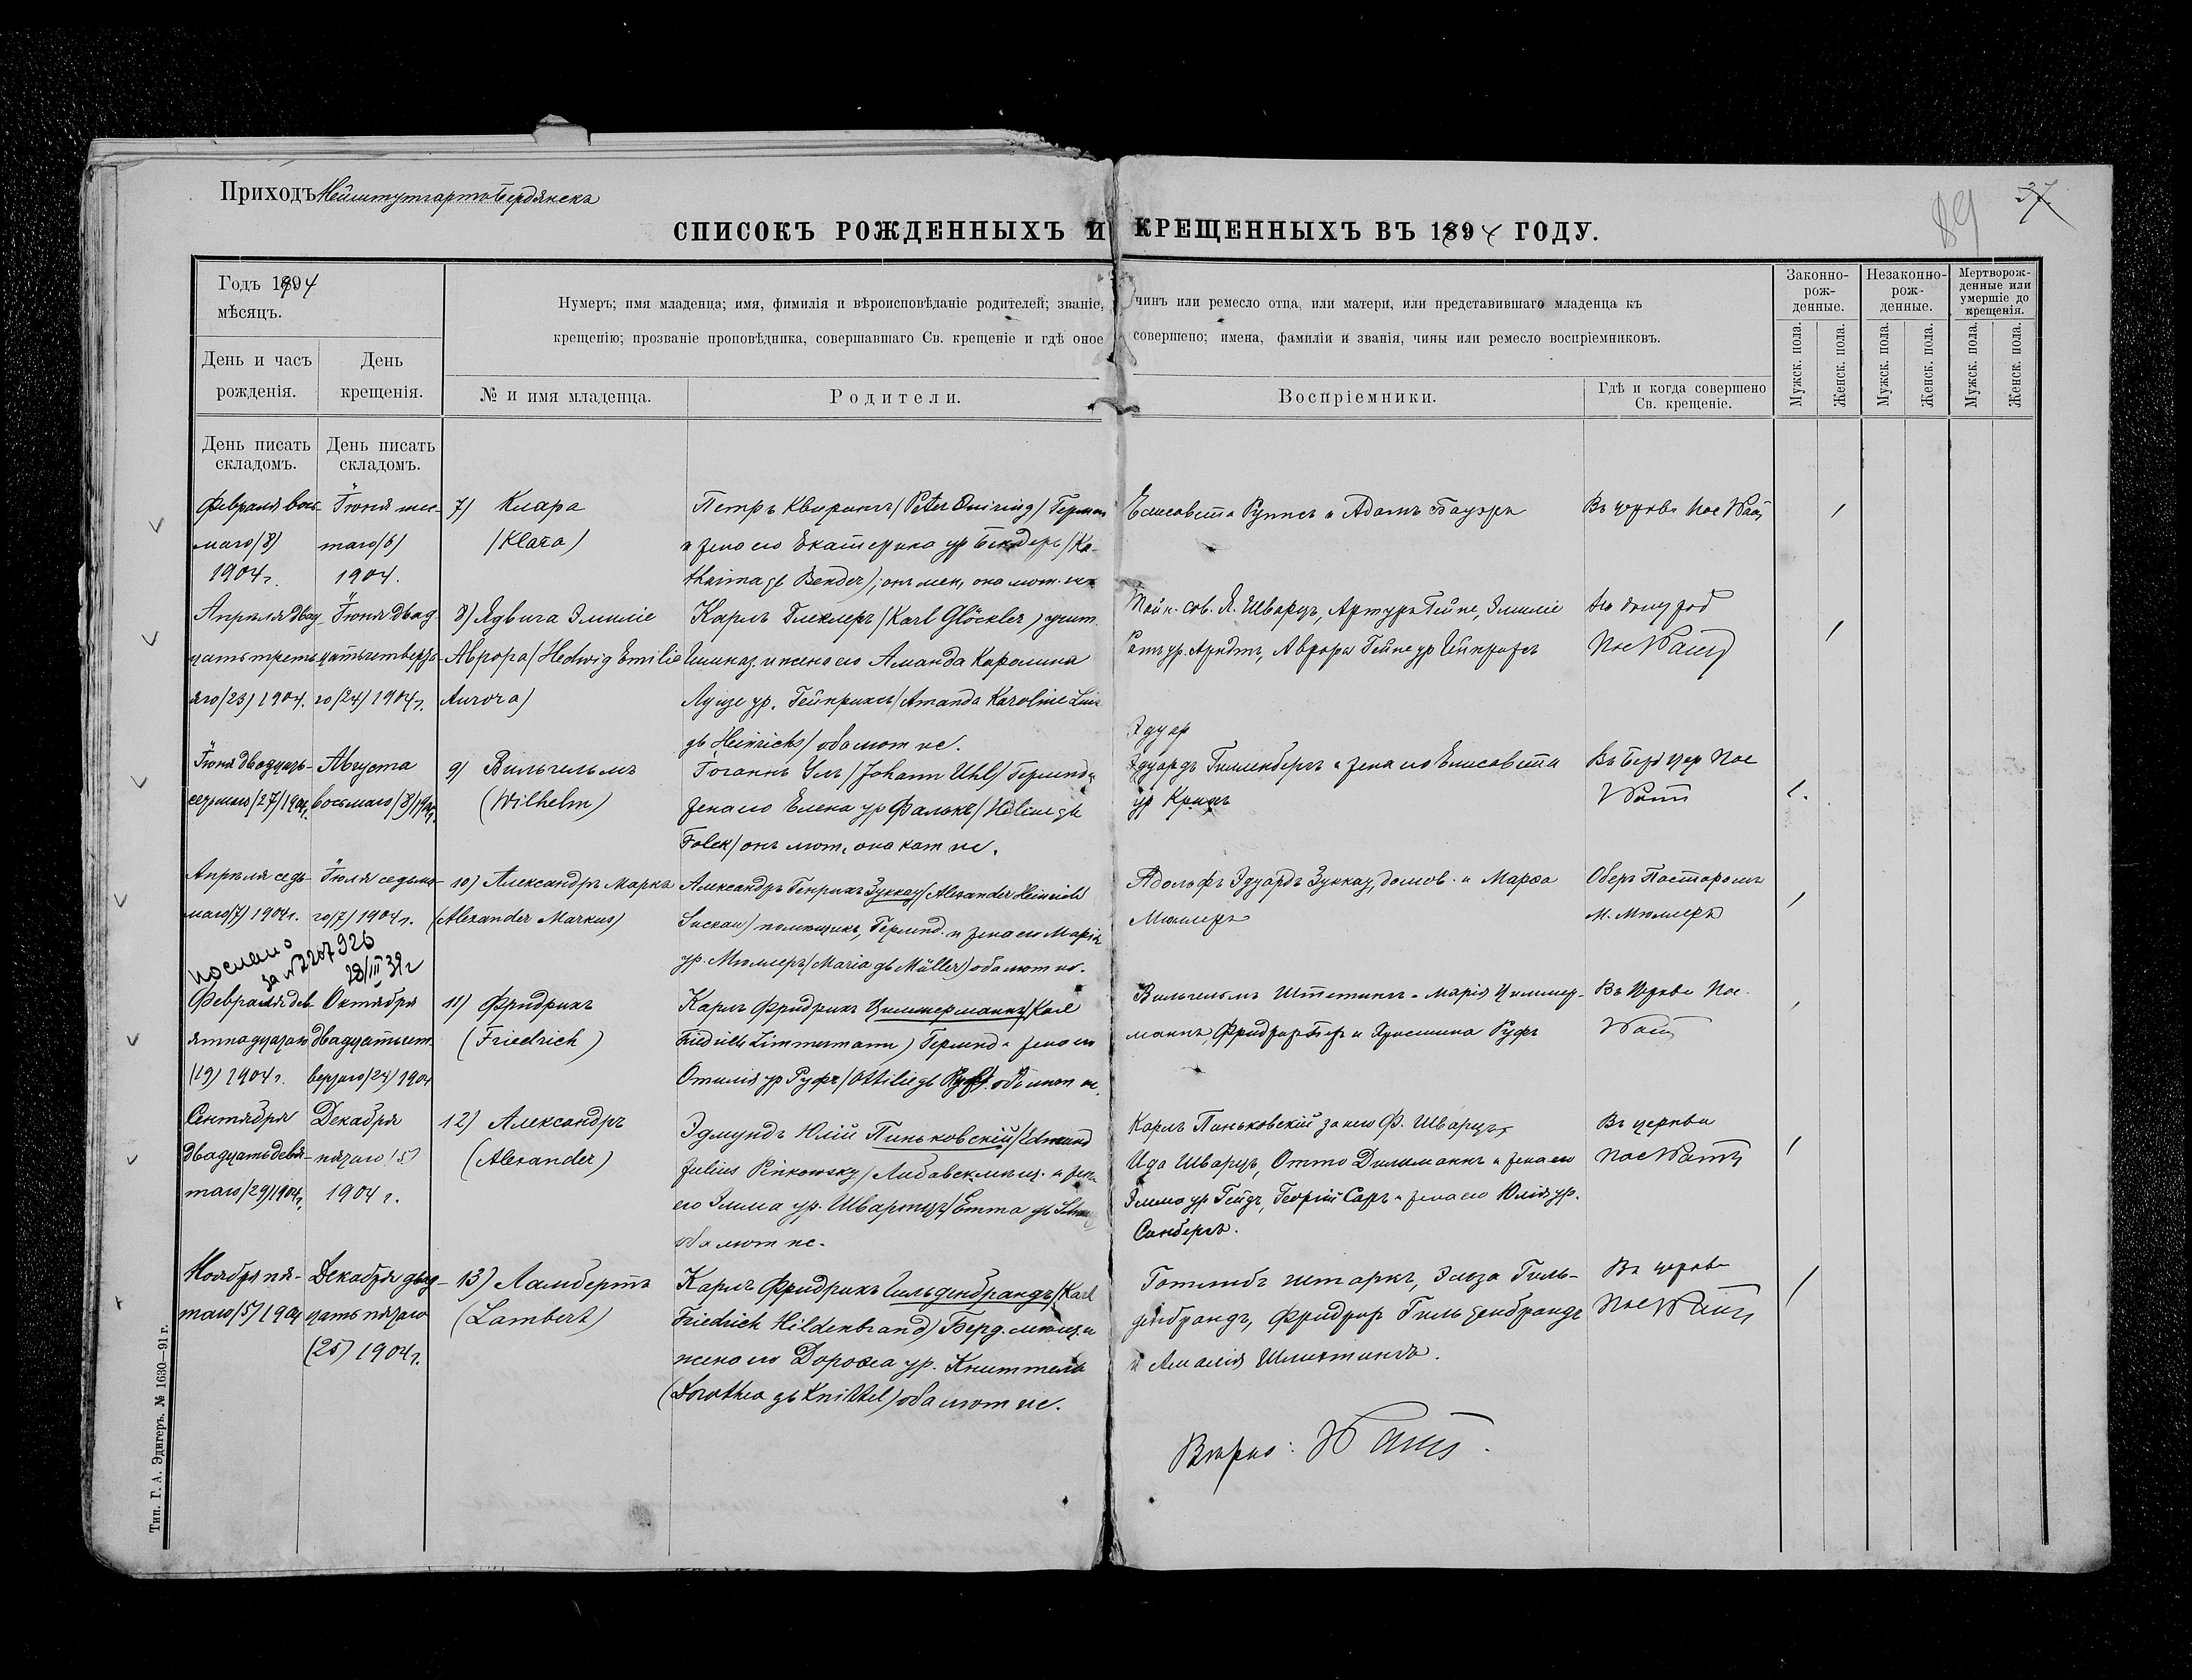 Приходъ Нейштутгартъ Бердянскъ
89
37.
СПИСОКЪ РОЖДЕННЫХЪ И КРЕЩЕННЫХЪ ВЪ 1894 ГОДУ.
Годъ 1894
мѣсяцъ.
День и часъ рожденія.
День крещенія.
Нумеръ; имя младенца; имя, фимилія и вѣроисповѣданіе родителей; званіе, чинъ или ремесло отца, или матери, или представившаго младенца къ
крещенію; прозваніе проповѣдника, совершавшаго Св. крещеніе и гдѣ оное совершено; имена, фамиліи и званія, чины или ремесло воспріемниковъ.
№ и имя младенца.
Родители.
Воспріемники.
Гдѣ и когда совершено
Св. крещеніе.
Законно-
рож-
денные.
Незаконно-
рож-
денные.
Мертворож-
денные или
умершіе до
крещенія.
Мужск. пола.
Женск. пола.
Мужск. пола.
Женск. пола.
Мужск. пола.
Женск. пола.
День писать
складомъ.
День писать
складомъ.
Февраля вось-
маго (8)
1904 г.
Іюня шес-
таго (6)
1904.
7) Клара
(Klara)
Петръ Квирингъ (Peter Quiring)
и жена его Екатерина ур Бендеръ (Ka-
tharina дь Bender), онъ мен, она лют.
Елисавета и Адамъ Бауэръ
Въ церкви Пас
Апрѣля двад-
цать треть-
яго (23) 1904.
Іюня двад-
цать четверта-
го (24) 1904 г.
8) Ядвига Эмиліе
Аврора (Hedwig Emilie
Aurora)
Карлъ Глеклеръ (Karl Glöckler) учит.
гимназ. и жена его Аманда Каролина
Луизе ур. Гейнрихсъ (Amanda Karoline
дь Heinrichs) оба лют ис.
Тайн. сов. Я. Шварцъ, Артуръ Гейне, Эмиліе
ур. Арндтъ, Аврора Гейне ур
Іюня двадцать-
седьмаго (27) 1904 г.
Августа
восьмаго (8) 1904 г.
9) Вильгельмъ
(Wilhelm)
Іоганнъ Улъ (Johann Uhl)
жена его Елена ур Фалькъ (Helene дь
Falck) онъ лют, она кат ис.
Эдуар
Эдуардъ Гилленбергъ и жена его Елисавета
ур
Въ Берд цер Пас
Апрѣля седь-
маго (7) 1904 г.
Іюля седьма-
го (7) 1904 г.
10) Александръ Маркъ
(Alexander Markus)
Александръ Генрихъ Зуккау (Alexander Heinrich
Suckau) помѣщикъ, и жена его Марія
ур. Мюллеръ (Maria дь Müller) оба лют ис.
Адольфъ Эдуардъ Зуккау, домов. и Марѳа
Мюллеръ
Оберъ Пасторомъ
М. Мюллеръ
послано
за № 2207926
28/III 39 г
Февраля дев-
ятнадцатаго
(19) 1904 г.
Октября
двадцать чет-
вертаго (24) 1904
11) Фридрихъ
(Friedrich)
Карлъ Фридрихъ Циммерманнъ (Karl
Friedrich Zimmermann) и жена его
Отилія ур Руфъ (Ottilie дь Ruff) оба лют ис.
Вильгельмъ Штетинъ и Марія Циммер-
маннъ, Фридрих и Руфъ
Въ церкви Пас.
Сентября
двадцать девя-
таго (29) 1904 г.
Декабря
пятаго (5)
1904 г.
12) Александръ
(Alexander)
Эдмундъ Юлій Пиньковскій (Edmund
Julius Pinkowsky) и жена
его Эмма ур. Шварцъ (Emma дь
оба лют ис.
Карлъ Паньковскій за него Ф. Шварцъ,
Ида Шварцъ, Отто Дилиманнъ и жена его
Эмма ур Гейдъ, Георгій Саръ и жена его Юлія ур.
Санбергъ.
Въ церкви
Ноября пя-
таго (5) 1904
Декабря двад-
цать пятаго
(25) 1904 г.
13) Ламбертъ
(Lambert)
Карлъ Фридрихъ Гильденбрандъ (Karl
Friedrich Hildenbrand) Берд. мѣщ. и
жена его Дороѳеа ур. Книттель
(Dorothea дь Knittel) оба лют ис.
Готлибъ Штаркъ, Эльза Гиль-
денбрандъ, Фридрих Гильденбрандъ
и Амалія
Въ церкви
Вѣрно:
Тип. Г. А. Эдигеръ. № 1630—91 г.